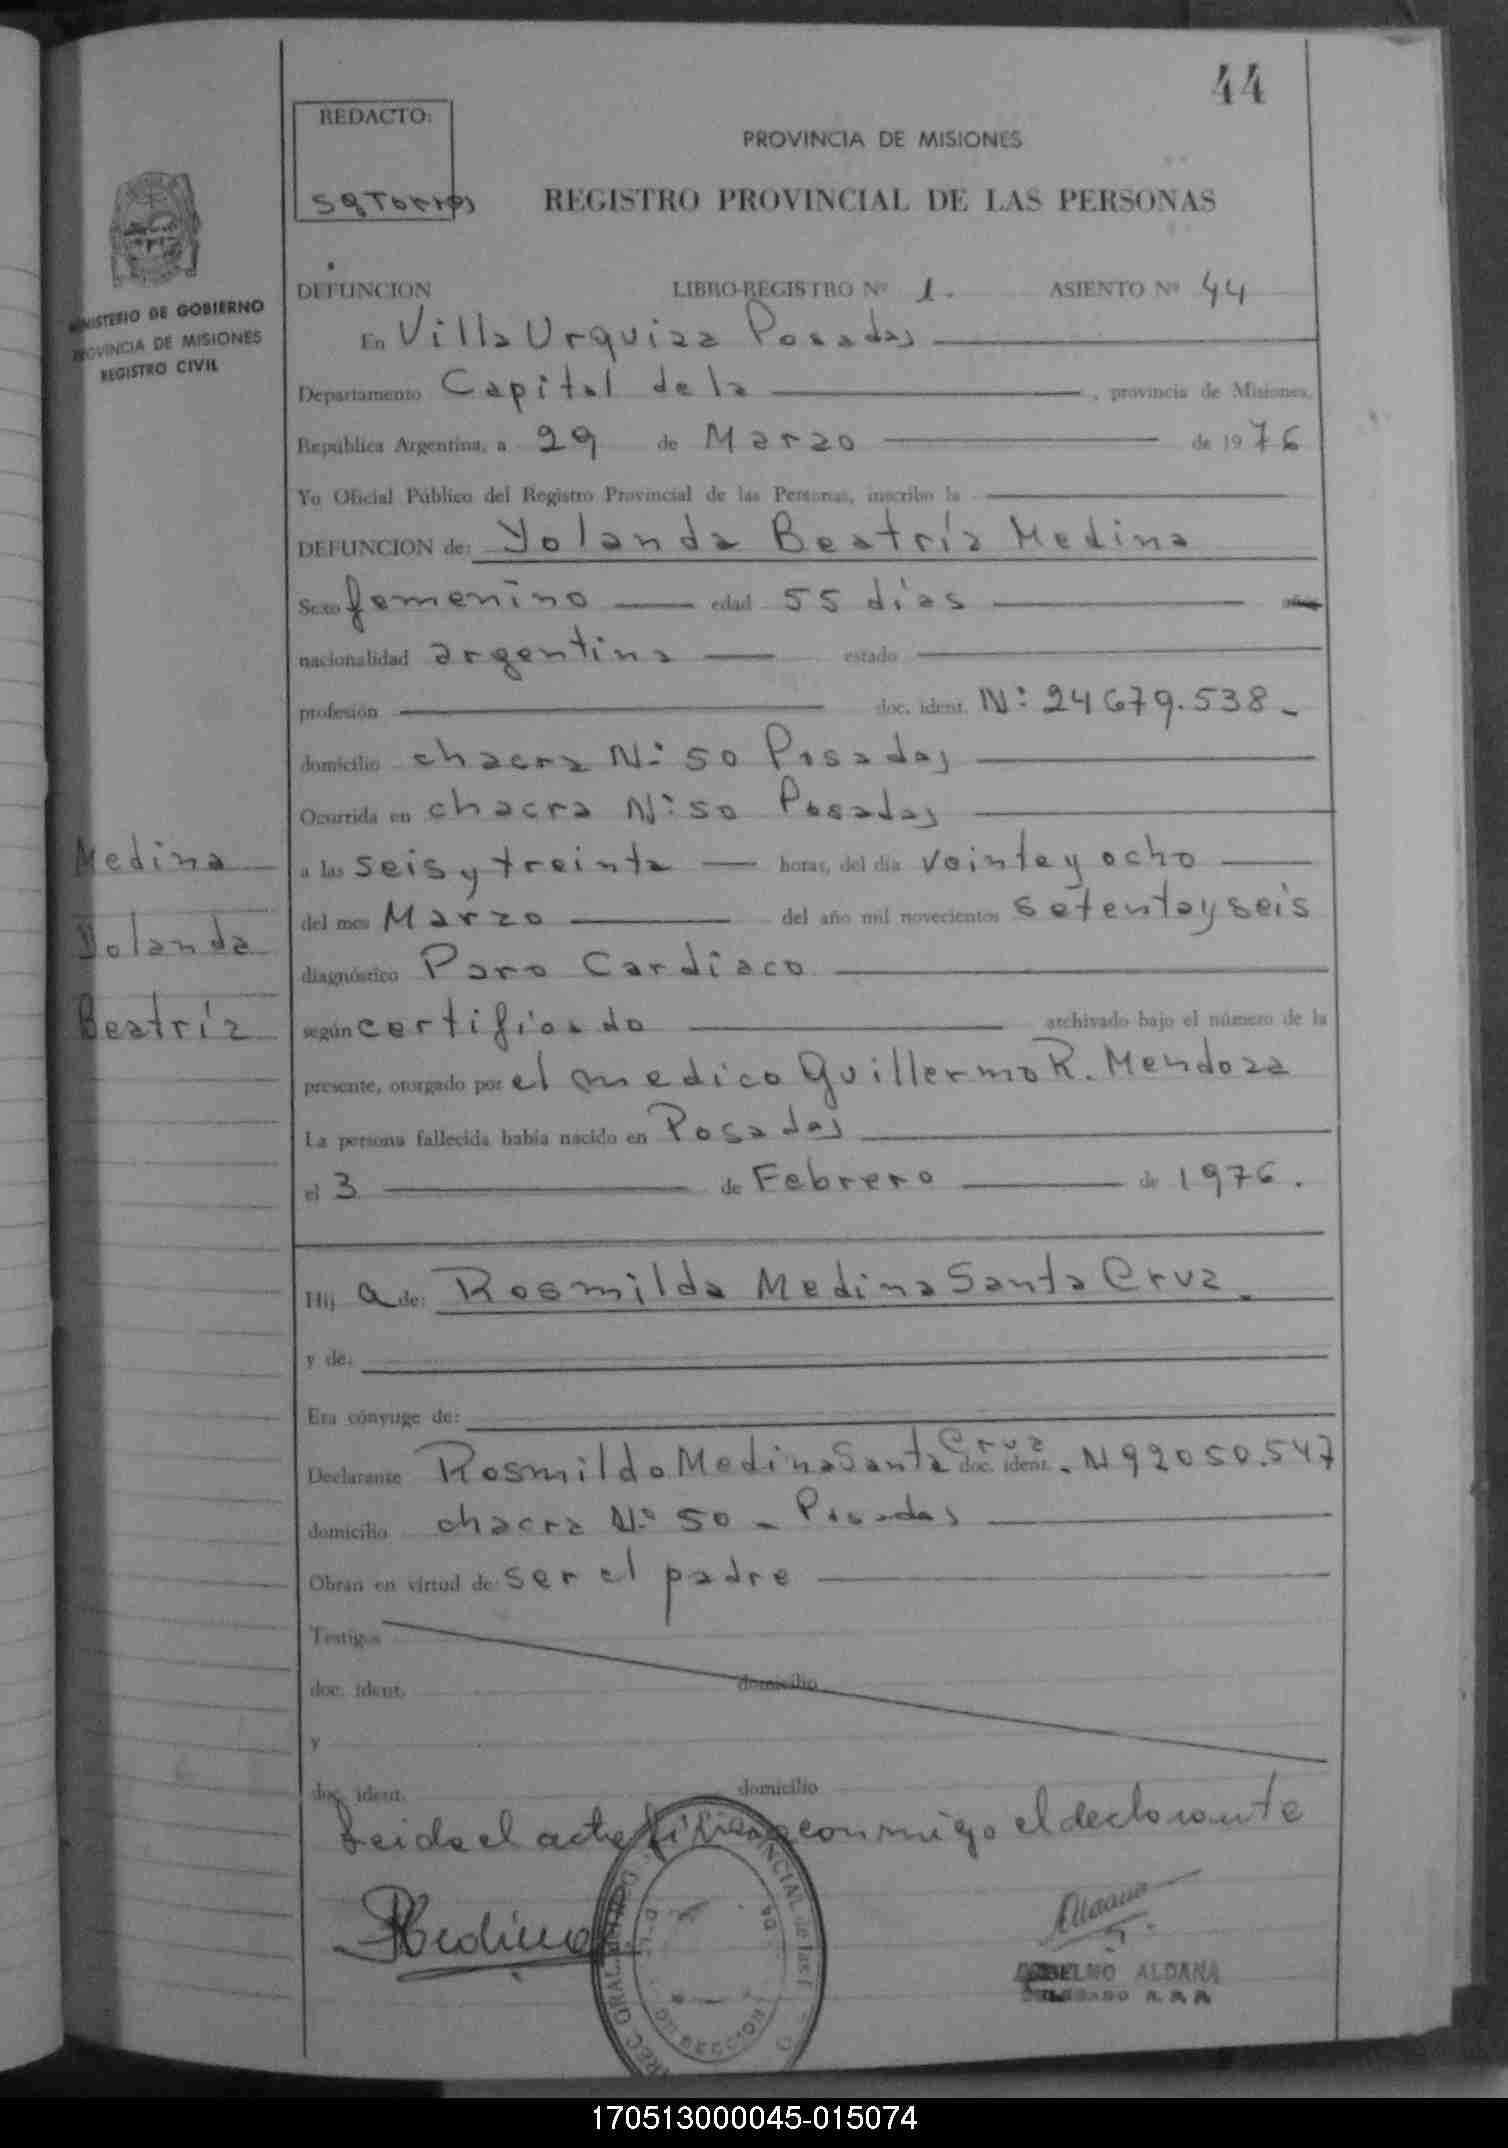 44
REDACTO:
PROVINCIA DE MISIONES
REGISTRO PROVINCIAL DE LAS PERSONAS
MINISTERIO DE GOBIERNO
PROVINCIA DE MISIONES
REGISTRO CIVIL
DEFUNCION LIBRO-REGISTRO Nº 1. ASIENTO Nº 44
En Villa Urquiza Posadas
Departamento Capital de la , provincia de Misiones,
República Argentina, a 29 de Marzo de 1976
Yo Oficial Público del Registro Provincial de las Personas, inscribo la
DEFUNCION de: Yolanda Beatríz Medina
Sexo femenino edad 55 días
nacionalidad argentina estado
profesión doc. ident. Nº 24679.538-
domicilio chacra Nº 50 Posadas
Ocurrida en chacra Nº 50 Posadas
a las seis y treinta horas, del día veinte y ocho
del mes Marzo del año mil novecientos setenta y seis
diagnóstico Paro Cardiaco
según certificado archivado bajo el número de la
presente, otorgado por el medico Guillermo R. Mendoza
La persona fallecida había nacido en Posadas
el 3 de Febrero de 1976.
Medina
Yolanda
Beatríz
Hij a de: Rosmilda Medina Santa Cruz.
y de:
Era cónyuge de:
Declarante Rosmildo Medina Santa Cruz doc. ident. N 92050.547
domicilio chacra Nº 50 - Posadas
Obran en virtud de ser el padre
Testigos
doc. ident. domicilio
y
doc. ident. domicilio
Leida el acta firma conmigo el declarante
Medina
Aldana
ALDANA
170513000045-015074